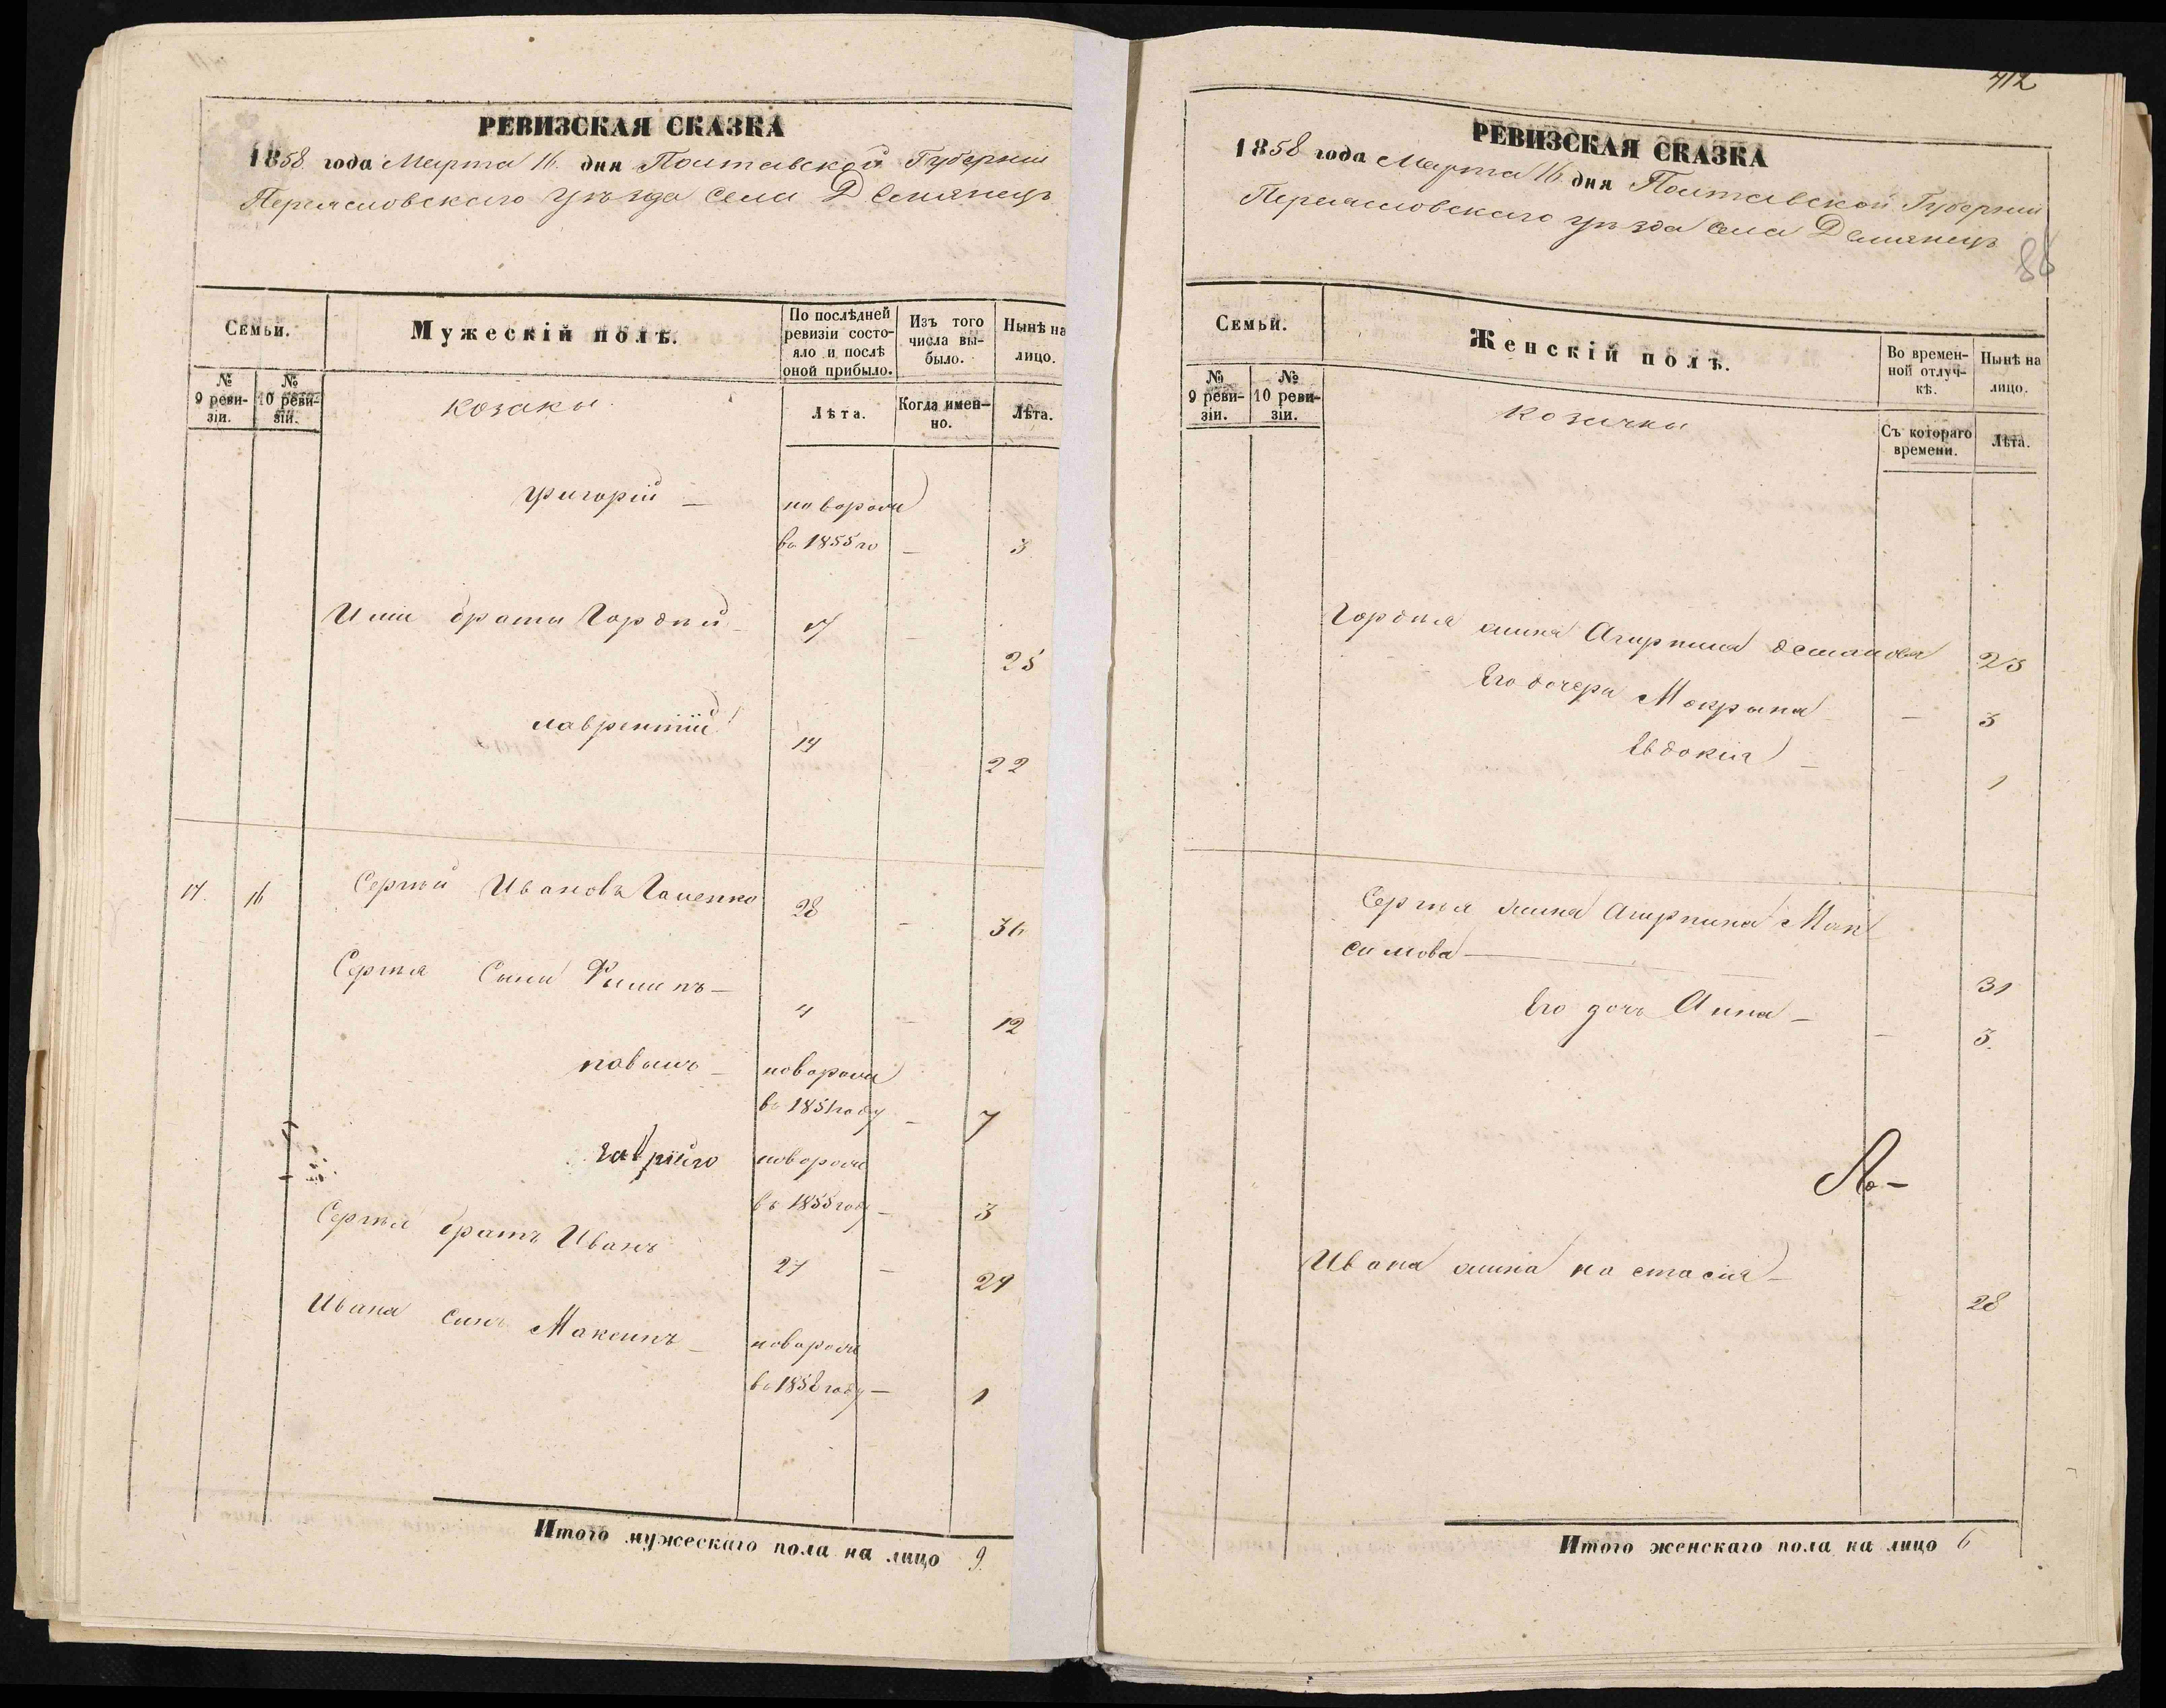 РЕВИЗСКАЯ СКАЗКА
1858 года Марта 16 дня Полтавской Губернии
Переясловского уѣзда Села Демянецъ
Семьи.
Мужескій полъ.
По послѣдней ревизіи состояло и послѣ оной прибыло.
Изъ того числа выбыло.
Нынѣ на лицо.
№ 9 ревизіи.
№ 10 ревизіи.
козаки
Лѣта.
Когда именно.
Лѣта.
Григорій — новорож
въ 1855 го — 3
браты Гордѣй 17 — 25
Лаврентій 14 22
17. 16 Сергѣй Ивановъ 28 — 36
Сергѣя Сыны Филипъ — 4 — 12
павелъ — новорож
въ 1851 году — 7
гавріилъ новорож
въ 1855 году — 3
Сергѣя братъ Иванъ 21 — 29
Ивана Сынъ Максимъ — новорож
въ 1858 году — 1
Итого мужескаго пола на лицо 9.
412
РЕВИЗСКАЯ СКАЗКА
1858 года Марта 16 дня Полтавской Губернии
Переясловского уѣзда Села Демянецъ
86
Семьи.
Женскій полъ.
Во временной отлучкѣ.
Нынѣ на лицо.
№ 9 ревизіи.
№ 10 ревизіи.
козачки
Съ котораго времени.
Лѣта.
Гордѣя жина Агирпина 23
Его дочери Мокрына — 3
Евдокія — 1
Сергѣя жина Агирпина Мак
симова — 31
Его дочь Анна — 3.
Ивана жина настасія — 28
Итого женскаго пола на лицо 6